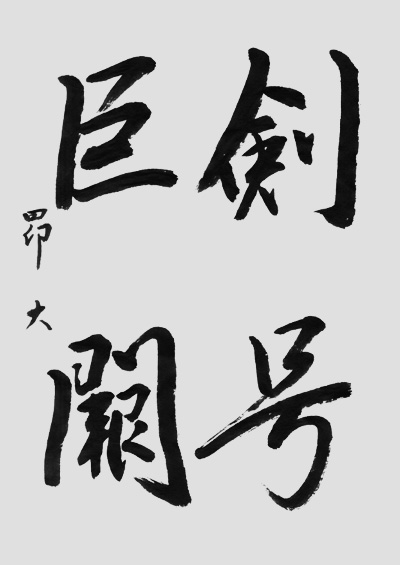 剣号
巨闕
昴 大